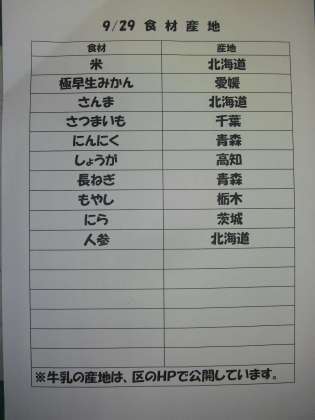 9/29 食材産地
食材 産地
米 北海道
極早生みかん 愛媛
さんま 北海道
さつまいも 千葉
にんにく 青森
しょうが 高知
長ねぎ 青森
もやし 栃木
にら 茨城
人参 北海道
※牛乳の産地は、区のHPで公開しています。